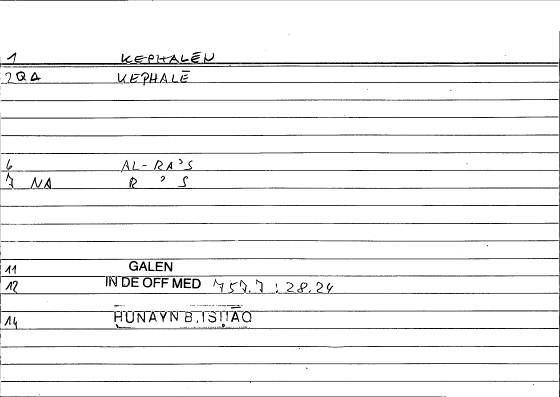 1 KEPHALĒN
2 QA KEPHALĒ
6 AL-RAʾS
7 NA R ʾ S
11 GALEN
12 IN DE OFF MED 757.7 : 28.24
14 ḤUNAYN B. ISḤĀQ